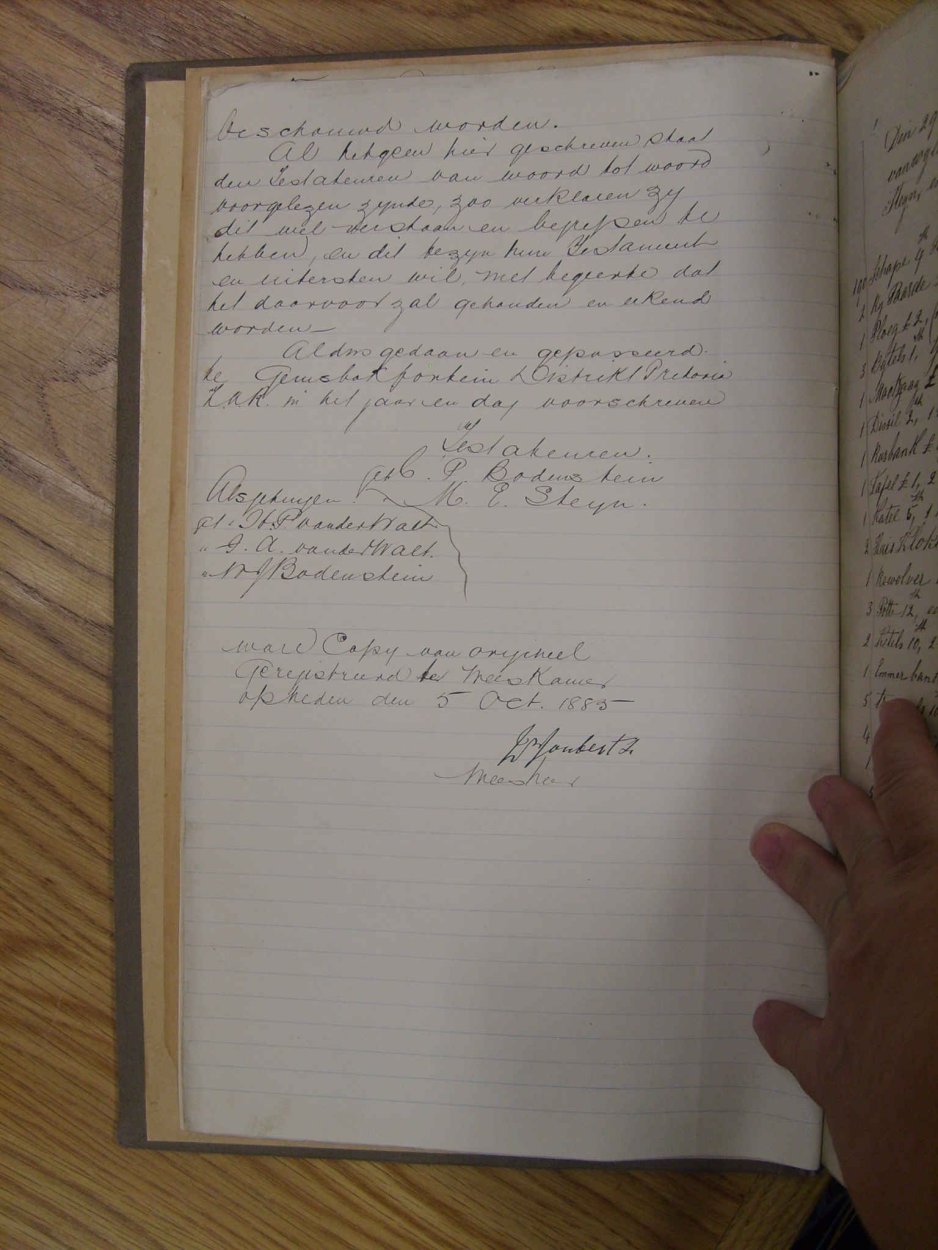 beschouwd worden.
Al hetgeen hier geschreven staat
den Testateuren van woord tot woord
voorgelezen zynde, zoo verklaren zy
dit wel verstaan en begrepen te
hebben, en dit te zyn hun Testament
en uitersten wil, met begeerte dat
het daarvoor zal gehouden en erkend
worden
Aldus gedaan en gepasseerd
te Gemsbokfontein Distrikt Pretoria
Z.A.R. in het jaar en dag voorschreven
Testateuren.
get C. P. Bodenstein
Als getuigen. M. E. Steyn.
get. P van der Walt
" J. A. van der Walt.
" Bodenstein
ware Copy van origineel
Geregistreerd ter Weeskamer
op heden den 5 Oct. 1885
Joubert
Weeshr
Den
Steyn,
190 Schape
2 Ry Paarde
1 Ploeg £2,
3 Bytels 1,
1
1 Dissel 2,
1 Rusbank £
1 Tafel £1, 2
1 Katel 5,
2
1 Rewolver
3 Potte 12,
2 Ketels 10, 2
1 Emmer
5
4